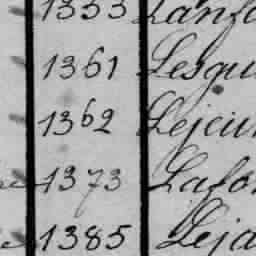 1353 Lanfo
1361 Lesqu
1362 Lejeu
1373 Lafo
1385 Leja